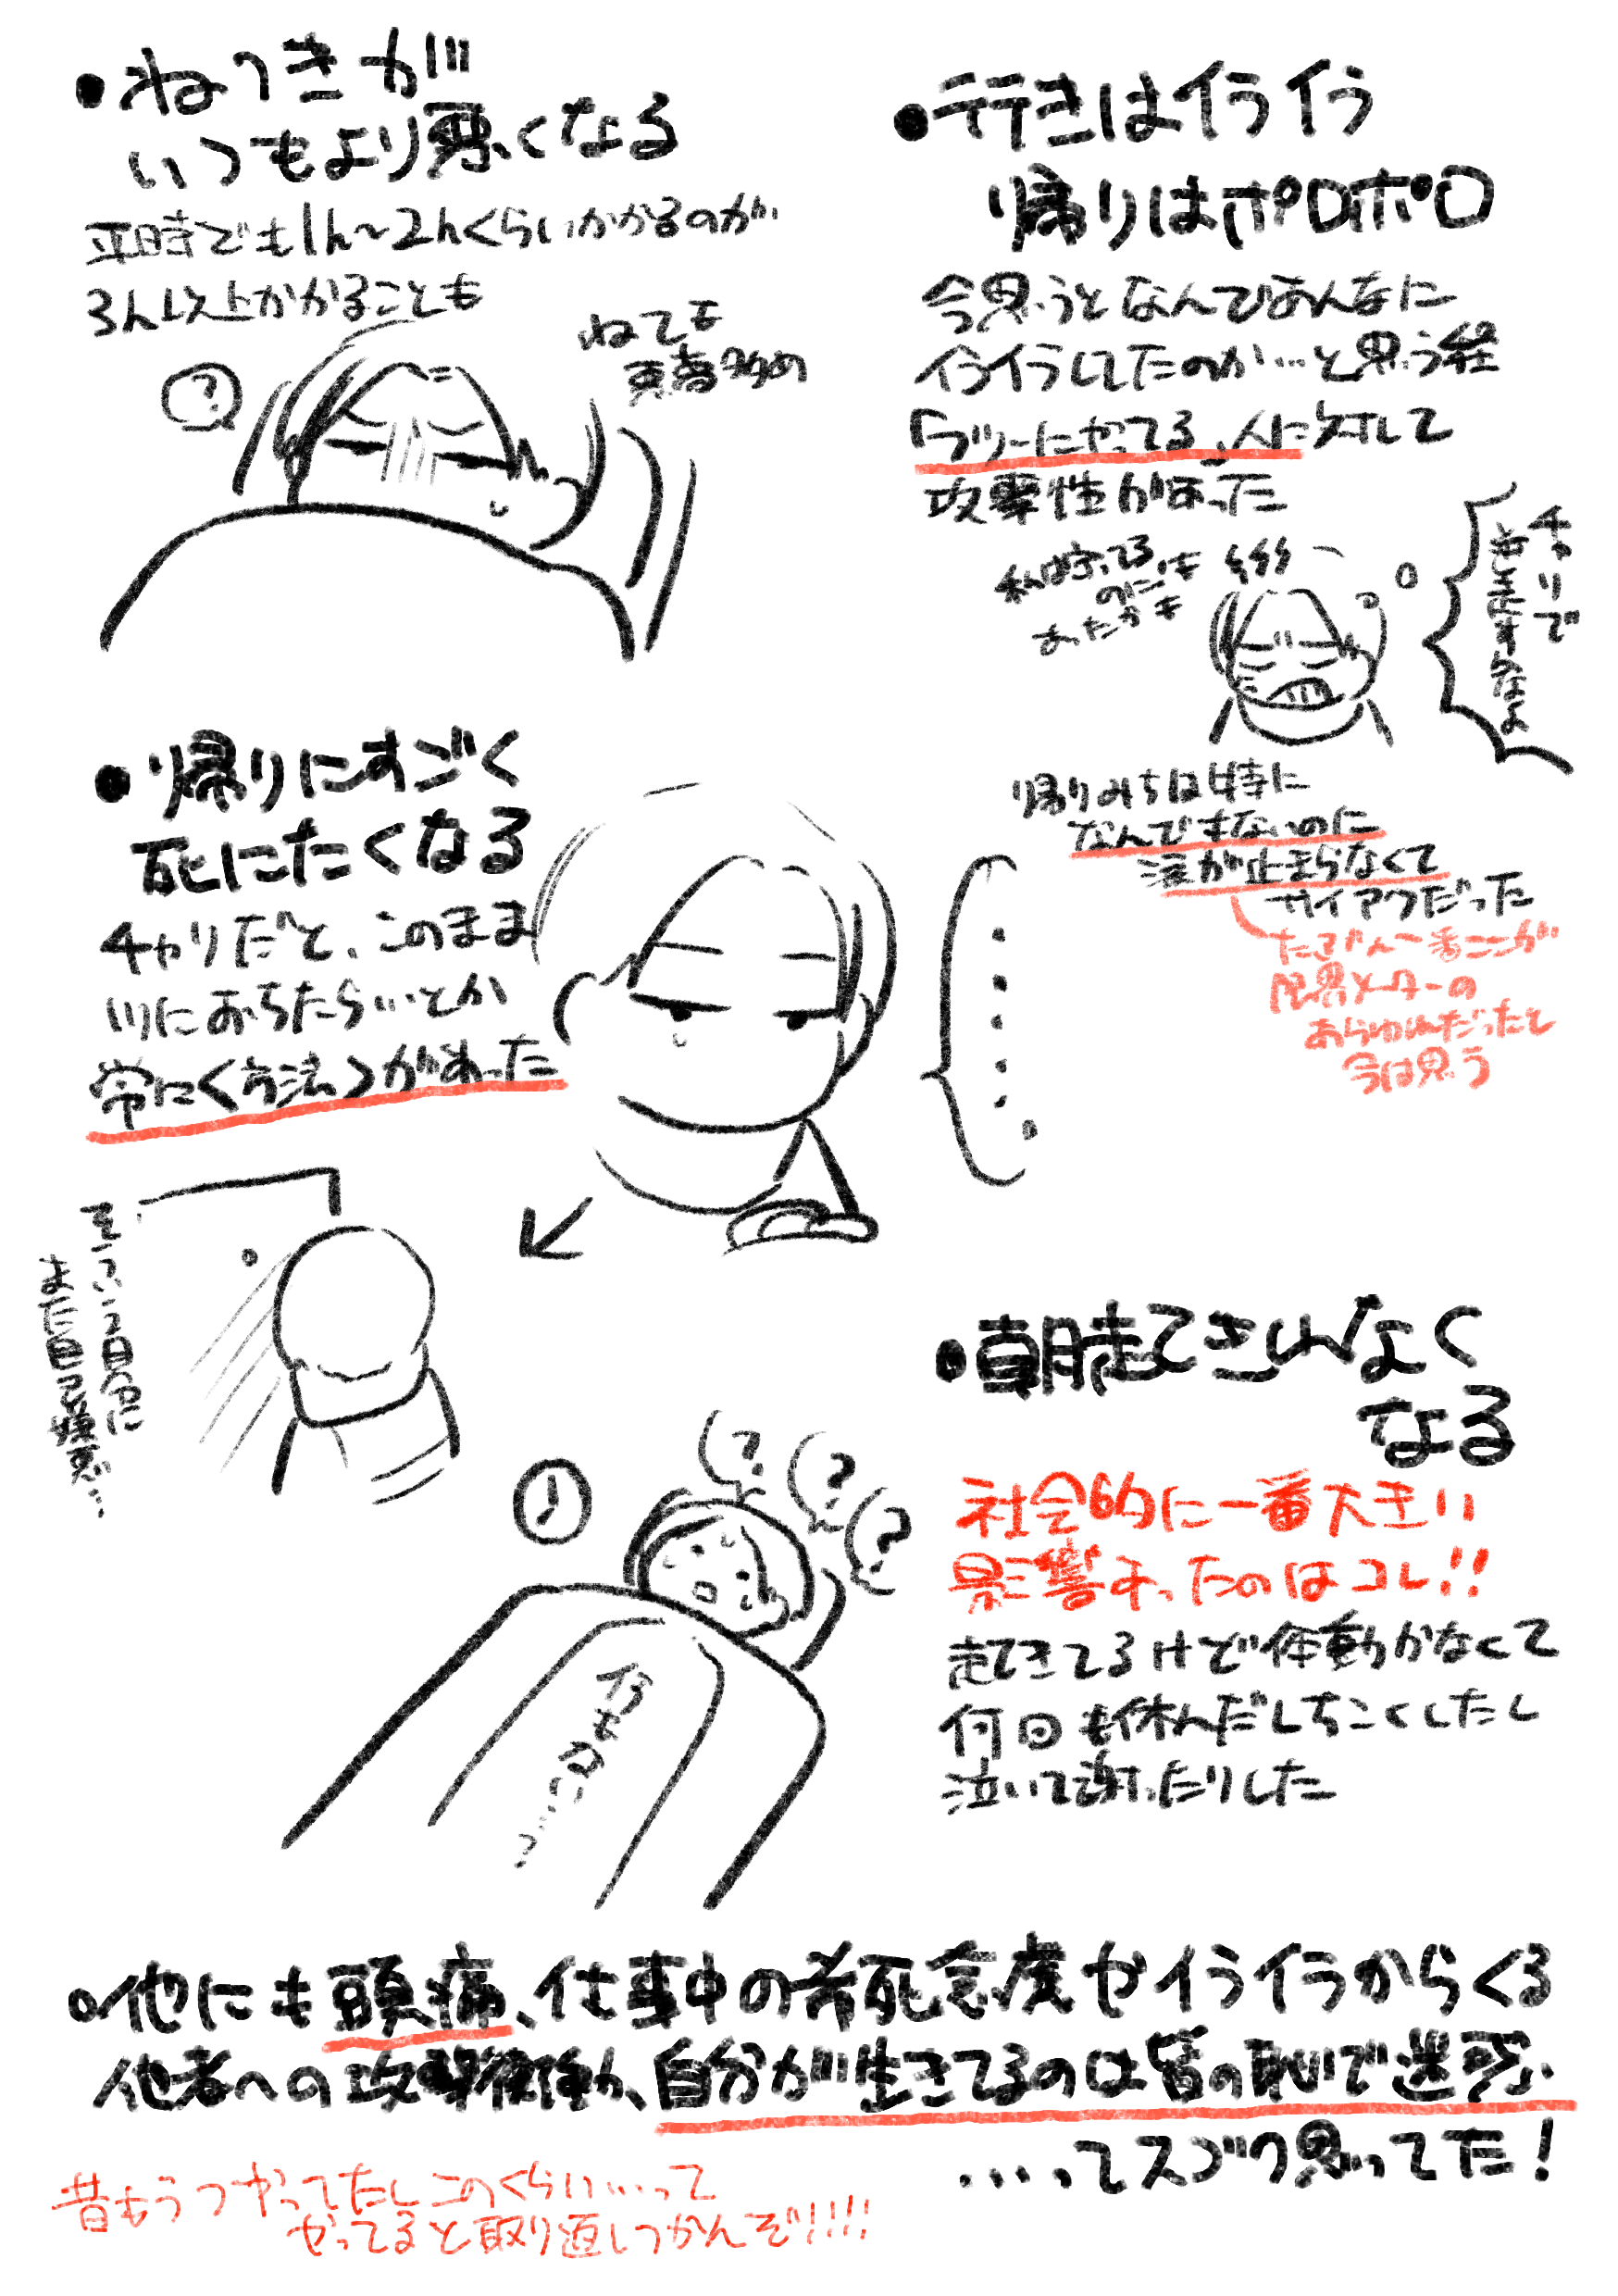 ・ねつきが
いつもより悪くなる
平時でも1h〜2hくらいかかるのが
3h以上かかることも
ねても
悪夢多め
?
・行きはイライラ
帰りはボロボロ
今思うとなんであんなに
イライラしてたのか…と思う程
「フツーにやってる」人に対して
攻撃性があった
私は守ってる
のにさも
あたかも
チャリで
とばすなよ
帰りみちは特に
なんでもないのに
涙が止まらなくて
サイアクだった
たぶん一番ここが
限界メーターの
あらゆれだったと
今は思う
・帰りにすごく
死にたくなる
チャリだと、このまま
川におちたらいいとか
常に〈方法〉があった
……
そういう自分に
また自己嫌悪…
・朝起きれなく
なる
社会的に一番大きい
影響あったのはコレ!!
起きてるけど体動かなくて
何回も休んだしちこくしたし
泣いて謝ったりした
? ? ?
何もない…?
・他にも頭痛、仕事中の希死念慮やイライラからくる
他者への攻撃衝動、自分が生きてるのは皆の恥で迷惑
…ってスゴク思ってた!
昔もうつやってたしこのくらい…って
やってると取り返しつかんぞ!!!!